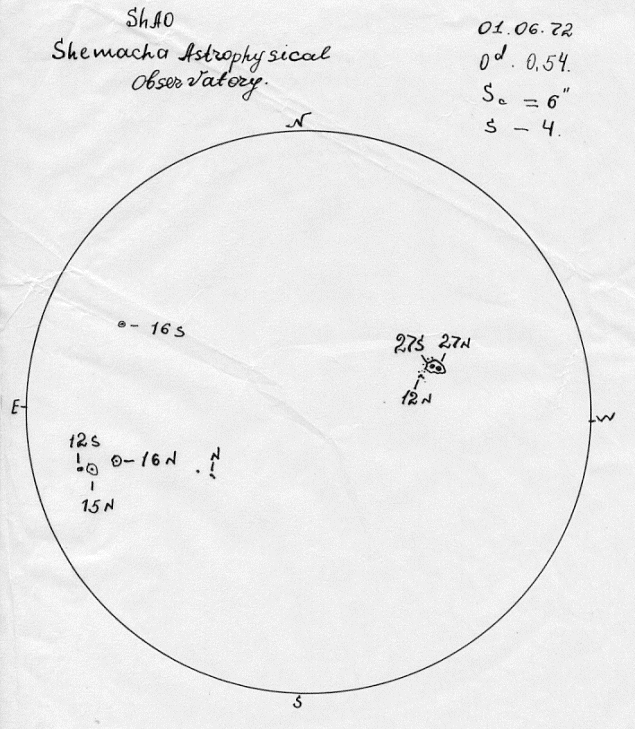 ShAO
Shemacha Astrophysical
Observatory.
01.06.72
0d. 0,54.
So = 6"
S - 4.
N
16S
27S 27N
12N
E
W
12S
16N
N
15N
S